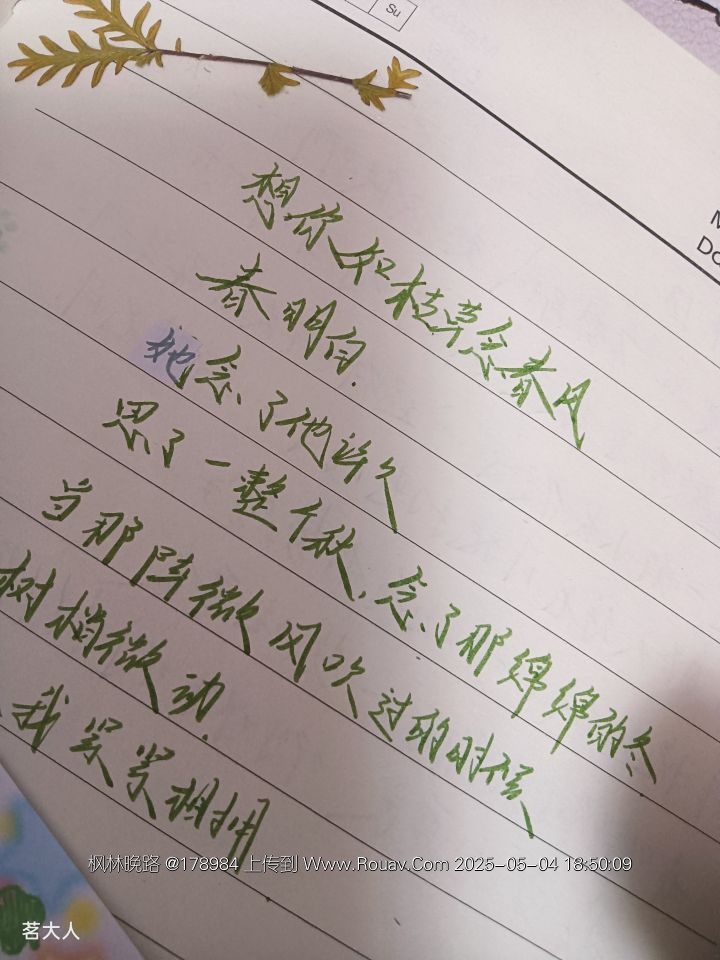 Su
M
DO
想你如枝草念春风
春明白.
她念了他许久
思了一整个秋.念了那绵绵的冬
当那阵微风吹过的时候
树梢微动.
我紧紧相拥
枫林晚路 @178984 上传到 Www.Rouav.Com 2025-05-04 18:50:09
茗大人